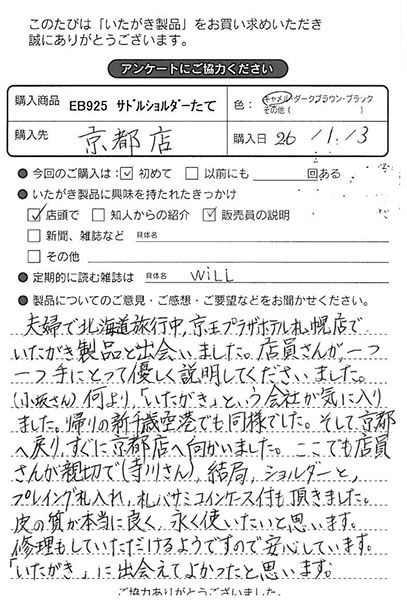 このたびは「いたがき製品」をお買い求めいただき
誠にありがとうございます。
アンケートにご協力ください
購入商品 EB925 サドルショルダーたて 色：キャメル・ダークブラウン・ブラック
その他（ ）
購入先 京都店 購入日 26 / 1 / 3
● 今回のご購入は：☑ 初めて □ 以前にも 回ある
● いたがき製品に興味を持たれたきっかけ
☑ 店頭で □ 知人からの紹介 ☑ 販売員の説明
□ 新聞、雑誌など 具体名
□ その他
● 定期的に読む雑誌は 具体名 WiLL
● 製品についてのご意見・ご感想・ご要望などをお聞かせください。
夫婦で北海道旅行中,京王プラザホテル札幌店で
いたがき製品と出会いました。店員さんが,一つ
一つ手にとって優しく説明してくださいました。
(小坂さん) 何より,「いたがき」という会社が気に入り
ました。帰りの新千歳空港でも同様でした。そして京都
へ戻り,すぐに京都店へ向かいました。ここでも店員
さんが親切で(寺川さん),結局,ショルダーと,
プレイング札入れ,札バサミコインケース付も頂きました。
皮の質が本当に良く,永く使いたいと思います。
修理もしていただけるようですので安心しています。
「いたがき」に出会えてよかったと思います。
ご協力ありがとうございました。